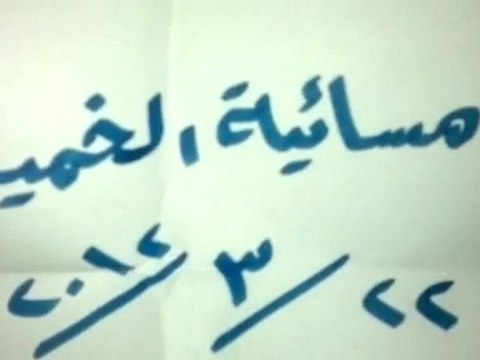 مسائية الخميس
٢٢/٣/٢٠١٢